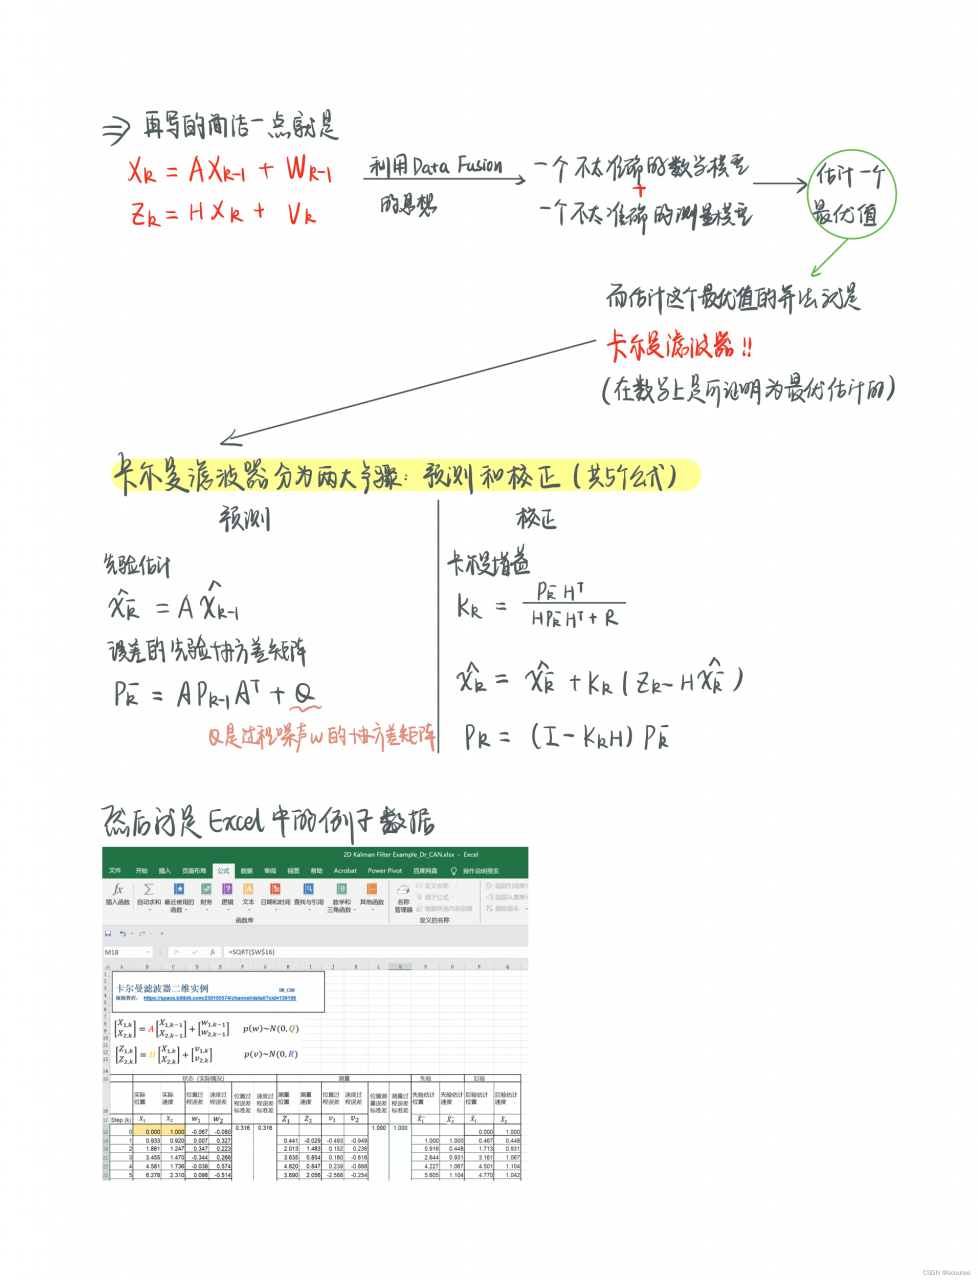 ⇒ 再写的简洁一点就是
X_k = AX_{k-1} + W_{k-1}
Z_k = HX_k + V_k
利用Data Fusion
的思想
一个不太准确的数学模型
+
一个不太准确的测量模型
估计一个
最优值
而估计这个最优值的算法就是
卡尔曼滤波器!!
(在数学上是可证明为最优估计的)
卡尔曼滤波器分为两大步骤: 预测和校正(共5个公式)
预测
先验估计
x̂_k^- = A x̂_{k-1}
误差的先验协方差矩阵
P_k^- = AP_{k-1}A^T + Q
Q是过程噪声w的协方差矩阵
校正
卡尔曼增益
K_k = P_k^- H^T / (HP_k^- H^T + R)
x̂_k = x̂_k^- + K_k(Z_k - Hx̂_k^-)
P_k = (I - K_kH)P_k^-
然后就是Excel中的例子数据
2D Kalman Filter Example_Dr_CAN.xlsx - Excel
文件 开始 插入 页面布局 公式 数据 审阅 视图 帮助 Acrobat Power Pivot 百度网盘 操作说明搜索
插入函数 自动求和 最近使用的函数 财务 逻辑 文本 日期和时间 查找与引用 数学和三角函数 其他函数 名称管理器 定义名称 用于公式 根据所选内容创建
函数库 定义的名称
M18 fx =SQRT($W$16)
A B C D E F G H I J K L M N O P Q
卡尔曼滤波器二维实例 DR_CAN
视频教程: https://space.bilibili.com/230105574/channel/detail?cid=139198
[X_{1,k} X_{2,k}] = A [X_{1,k-1} X_{2,k-1}] + [w_{1,k-1} w_{2,k-1}] p(w)~N(0,Q)
[Z_{1,k} Z_{2,k}] = H [X_{1,k} X_{2,k}] + [v_{1,k} v_{2,k}] p(v)~N(0,R)
状态(实际情况) 测量 先验 后验
实际位置 实际速度 位置过程误差 速度过程误差 位置过程误差标准差 速度过程误差标准差 测量位置 测量速度 位置过程误差 速度过程误差 位置测量误差标准差 测量过程误差标准差 先验估计位置 先验估计速度 后验估计位置 后验估计速度
Step (k) X_1 X_2 W_1 W_2 Z_1 Z_2 v_1 v_2
0 0.000 1.000 -0.067 -0.080 0.316 0.316 1.000 1.000 0.000 1.000
1 0.933 0.920 0.007 0.327 0.441 -0.029 -0.493 -0.949 1.000 1.000 0.467 0.448
2 1.861 1.247 0.347 0.223 2.013 1.483 0.152 0.236 0.916 0.448 1.713 0.931
3 3.455 1.470 -0.344 0.266 3.635 0.854 0.180 -0.616 2.644 0.931 3.161 1.067
4 4.581 1.736 -0.038 0.574 4.820 0.847 0.239 -0.888 4.227 1.067 4.501 1.104
5 6.278 2.310 0.096 -0.514 3.690 2.056 -2.588 -0.254 5.605 1.104 4.770 1.042